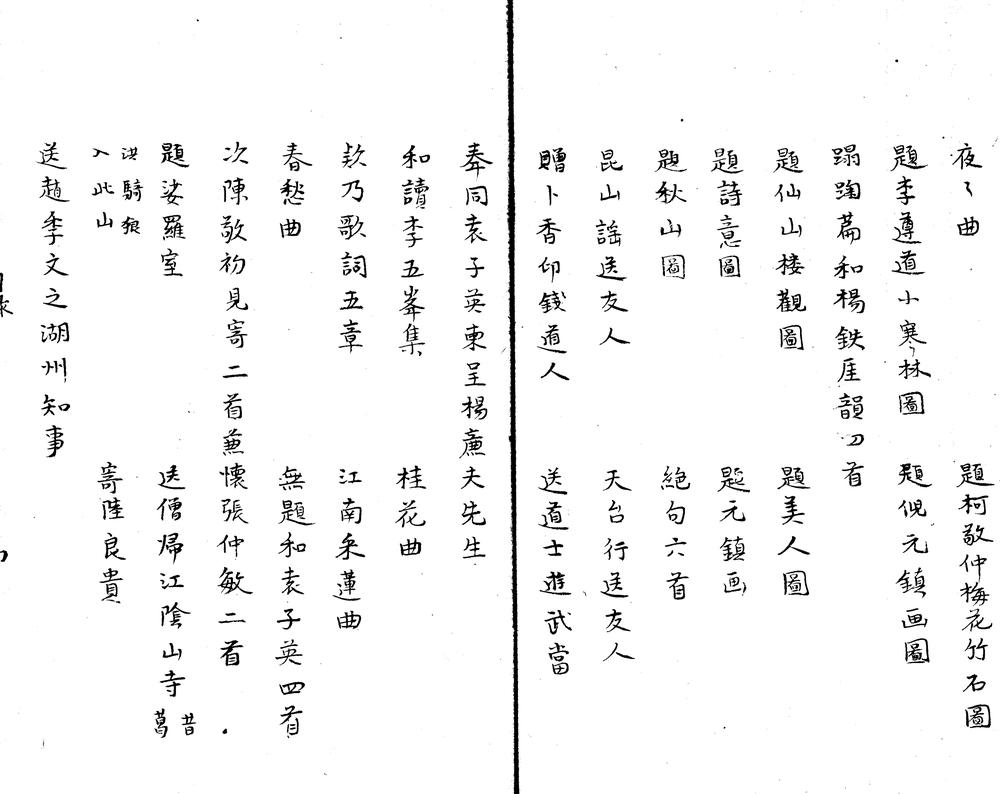 夜〻曲　題柯敬仲梅花竹石圖
題李遵道小寒〻林圖　題倪元鎮画圖
蹋踘篇和楊鉄厓韻刀首
題仙山楼觀圖　題美人圖
題詩意圖　題元鎮画
題秋山圖　絶句六首
昆山謡送友人　天台行送友人
贈卜香印錢道人　送道士遊武當
奉同袁子英柬呈楊廉夫先生
和讀李五峯集　桂花曲
欸乃歌詞五章　江南采蓮曲
春愁曲　無題和袁子英四首
次陳敬初見寄二首兼懷張仲敏二首
題娑羅室　送僧帰江陰山寺 昔葛
洪騎狼入此山　寄陸良貴
送趙季文之湖州知事